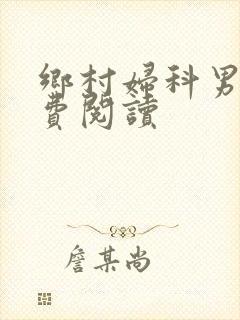 鄉村婦科男
費閱讀
詹某尚